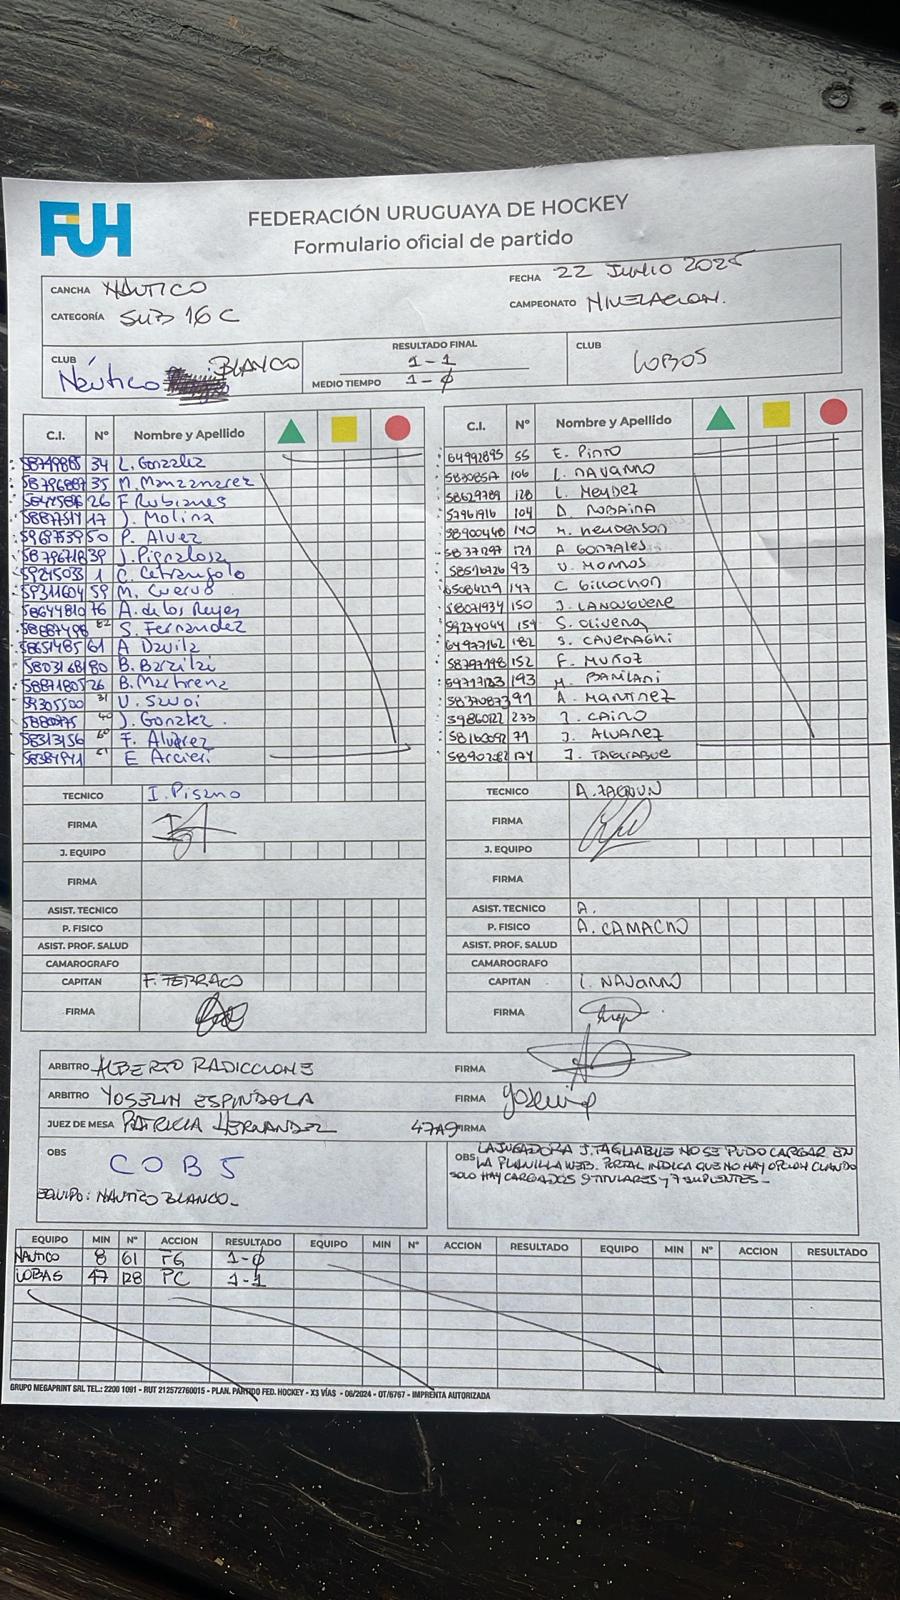 FUH
FEDERACIÓN URUGUAYA DE HOCKEY
Formulario oficial de partido
CANCHA NÁUTICO
FECHA 22 JUNIO 2025
CATEGORÍA SUB 16 C
CAMPEONATO NIVELACION.
CLUB Náutico BLANCO
RESULTADO FINAL
1-1
MEDIO TIEMPO 1-0
CLUB LOBOS
C.I. N° Nombre y Apellido
34 L. Gonzalez
35 M. Manzanarez
26 F Rubianes
17 J. Molina
50 P. Alvez
39 J. Pigazlosa
1 C. Cetrangolo
59311604 59 M. Cuervo
58644810 76 A. de los Reyes
82 S. Fernandez
58651485 61 A Davila
58031681 80 B. Barzilai
58871805 26 B. Marbrena
59305500 31 V. Swoi
J. Gonzlez.
58313156 60 F. Alvarez
E Arcieri
TECNICO I. Pisano
FIRMA
J. EQUIPO
FIRMA
ASIST. TECNICO
P. FISICO
ASIST. PROF. SALUD
CAMAROGRAFO
CAPITAN F. FERRACO
FIRMA
C.I. N° Nombre y Apellido
64992895 55 E. PINTO
106 L. NAVARRO
58629789 128 L. MENDEZ
57961916 104 D. ROBAINA
58900448 140 M. HENDERSON
121 A GONZALES
93 V. MORROS
147 C. GILLOCHON
58071934 150 J. LANDUSVERE
59274044 154 S. OLIVERA
64977162 182 S. CAVERAGHI
58797798 152 F. MUÑOZ
193 M. DAMIANI
91 A. MARTINEZ
233 J. CAIRO
71 J. ALVAREZ
174 J. TAGLIABUE
TECNICO A.
FIRMA
J. EQUIPO
FIRMA
ASIST. TECNICO A.
P. FISICO A. CAMACHO
ASIST. PROF. SALUD
CAMAROGRAFO
CAPITAN L. NAVARRO
FIRMA
ARBITRO ALBERTO RADICCIONE FIRMA
ARBITRO YOSELIN ESPINDOLA FIRMA Yoselin
JUEZ DE MESA PATRICIA HERNANDEZ 47A9 FIRMA
OBS COB5
EQUIPO: NAUTICO BLANCO_
OBS LA JUGADORA J. TAGLIABUE NO SE PUDO CARGAR EN
LA PLANILLA WEB. PORTAL INDICA QUE NO HAY OPCION CUANDO
SOLO HAY CARGADOS 9 TITULARES y 7 SUPLENTES_
EQUIPO MIN N° ACCION RESULTADO EQUIPO MIN N° ACCION RESULTADO EQUIPO MIN N° ACCION RESULTADO
NAUTICO 8 61 FG 1-0
LOBAS 47 128 PC 1-1
GRUPO MEGAPRINT SRL TEL.: 2200 1091 - RUT 212572760015 - PLAN. PARTIDO FED. HOCKEY - X3 VÍAS - 06/2024 - OT/6767 - IMPRENTA AUTORIZADA